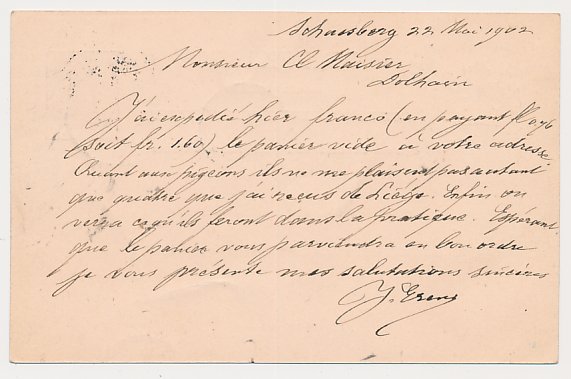 Schaesberg 22 Mai 1902
Monsieur Cl Maisier
Dolhain
J'ai expédié hier franco (en payant fl 0.76
(soit fr. 1.60) le panier vide à votre adresse.
Quant aux pigeons ils ne me plaisent pas autant
que quatre que j'ai reçus de Liége. Enfin on
verra ce qu'ils feront dans la pratique. Espérant
que le panier vous parviendra en bon ordre
je vous présente mes salutations sincères